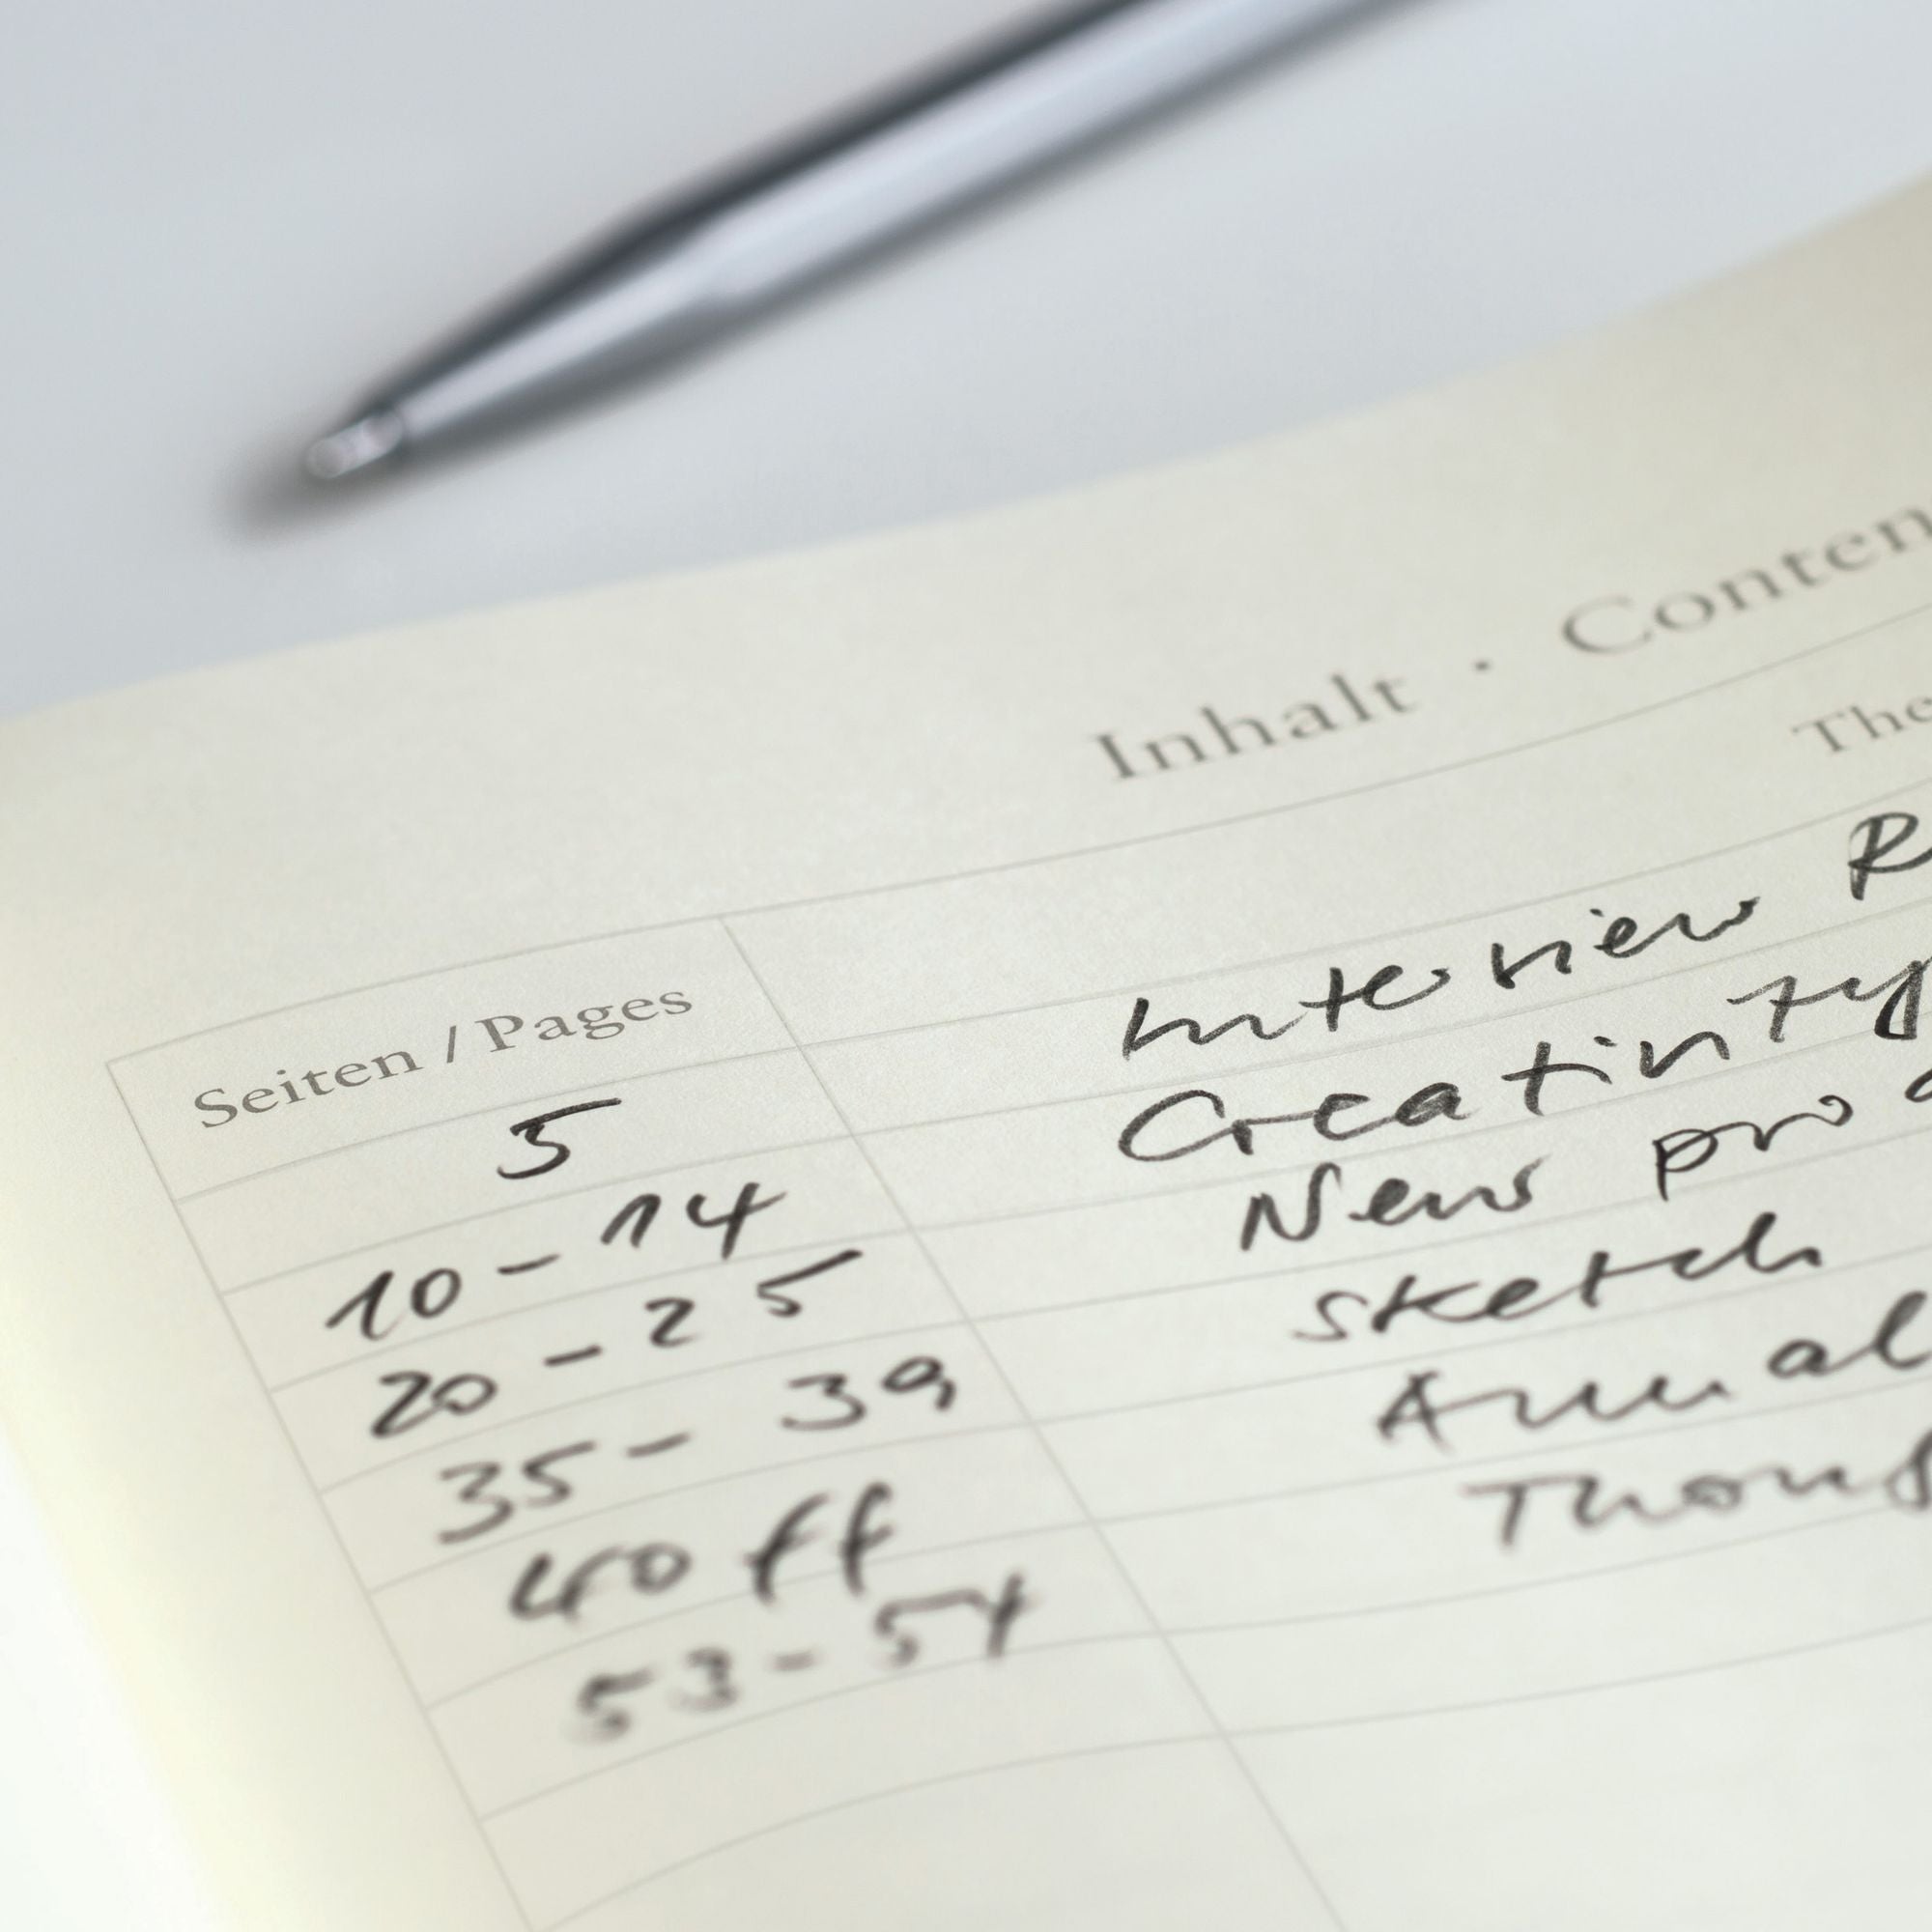 Inhalt · Conten
Seiten / Pages The
5 Interview R
10 - 14 Creativity
20 - 25 New pro
35 - 39 Sketch
40 ff Annual
53 - 54 Thoug